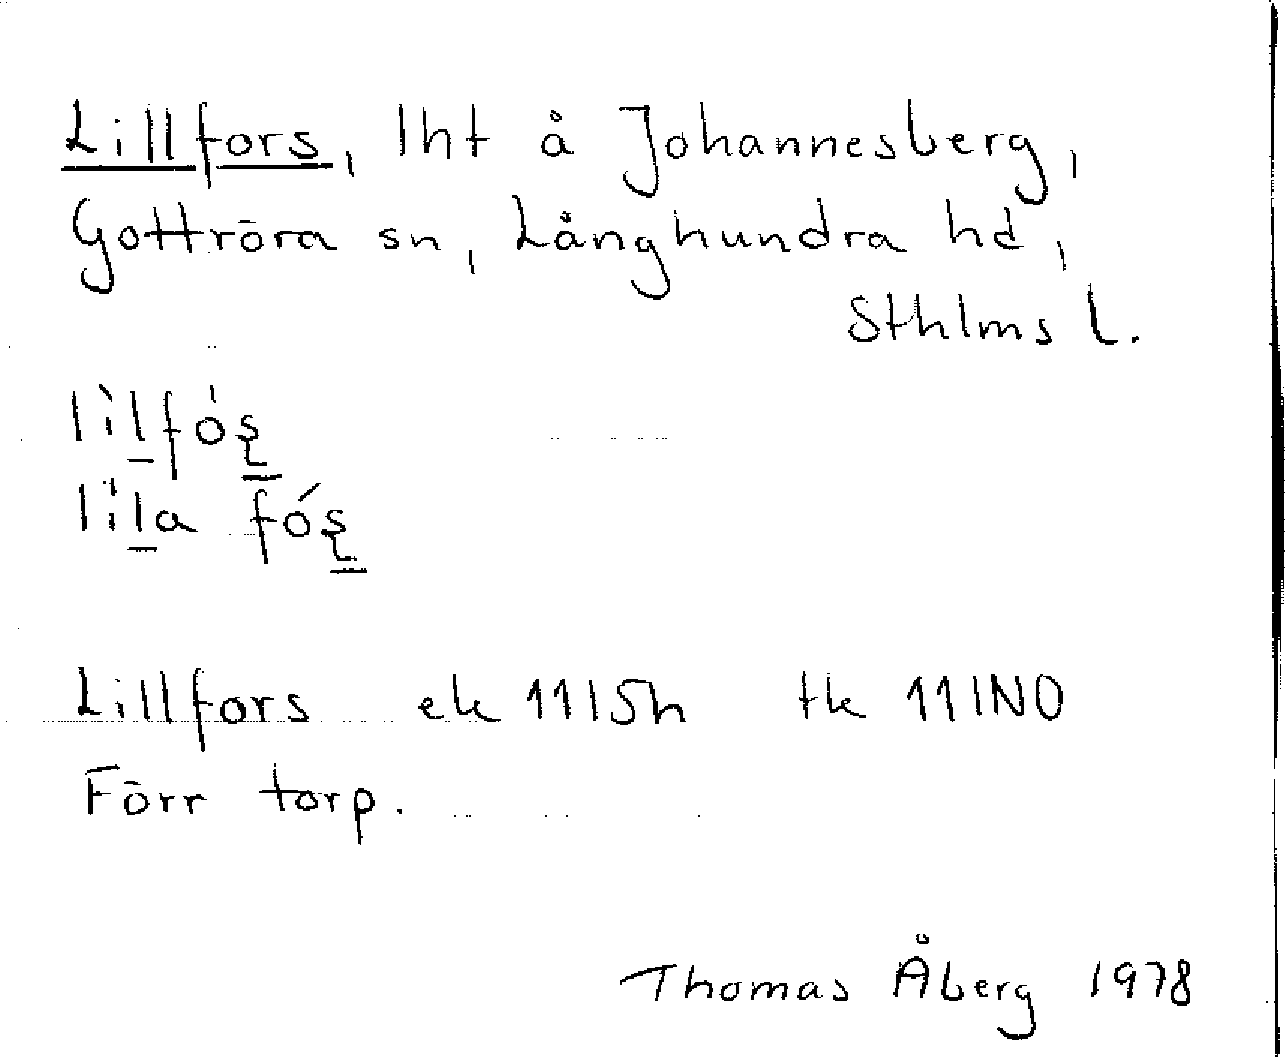 Lillfors, lht å Johannesberg,
Gottröra sn, Långhundra hd,
Sthlms l.
lìlfóʂ
lìla fóʂ
Lillfors ek 11I5h tk 11INO
Förr torp.
Thomas Åberg 1978